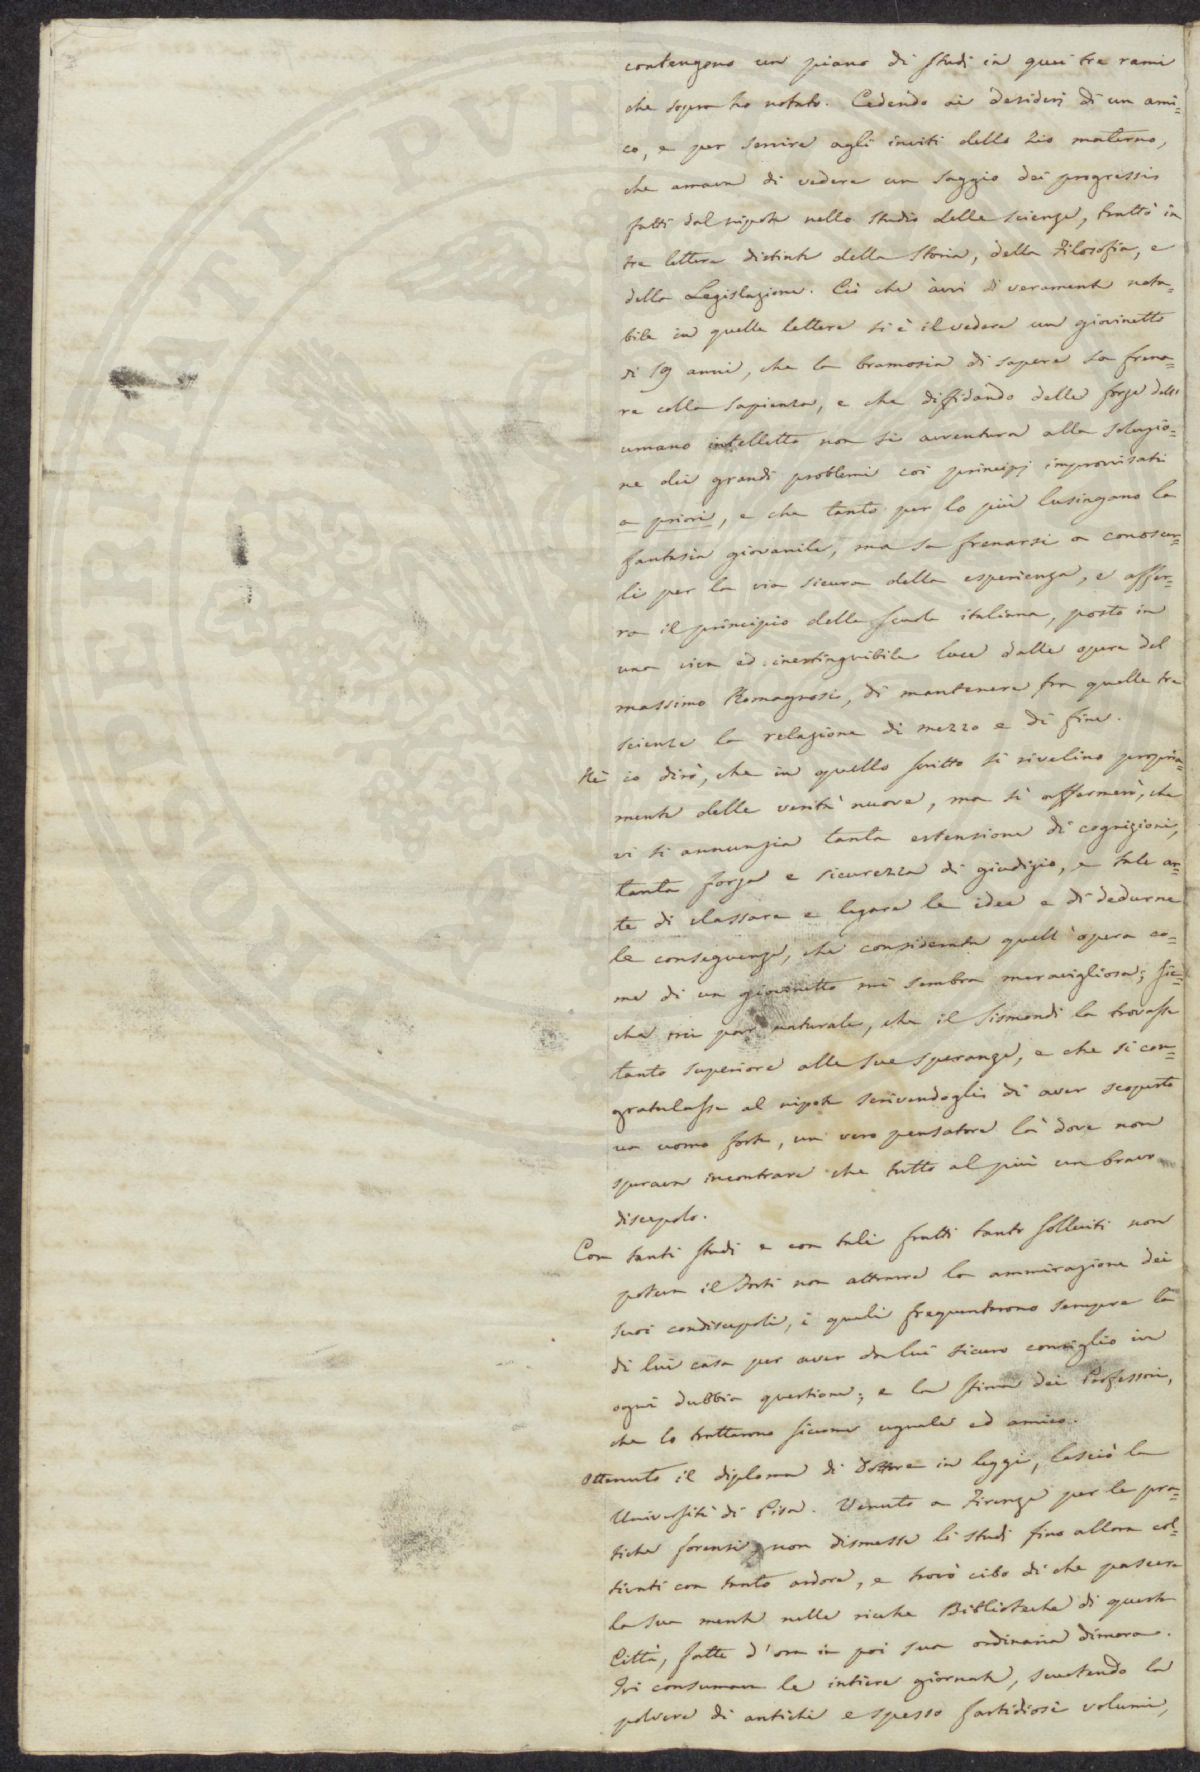 contengono un piano di studi in quei tre rami
che sopra ho notato. Cedendo ai desiderj di un ami=
co, e per servire agli inviti dello zio materno,
che amava di vedere un saggio dei progressi
fatti dal nipote nello studio delle scienze, trattò in
tre lettere distinte della Storia, della Filosofia, e
della Legislazione. Ciò che àvvi di veramente nota=
bile in quelle lettere si è il vedere un giovinetto
di 19 anni, che la bramosia di sapere sa frena=
re colla sapienza, e che diffidando delle forze dello
umano intelletto non si avventura alla soluzio=
ne dei grandi problemi coi principj improvvisati
a priori, e che tanto per lo più lusingano la
fantasia giovanile, ma sa frenarsi a conoscer=
li per la via sicura della esperienza, e affer=
ra il principio della scuola italiana, posto in
una viva ed inestinguibile luce dalle opere del
massimo Romagnosi, di mantenere fra quelle tre
scienze la relazione di mezzo e di fine.
Nè io dirò, che in quello scritto si rivelino propria=
mente delle verità nuove, ma sì affermerò, che
vi si annunzia tanta estensione di cognizioni,
tanta forza e sicurezza di giudizio, e tale ar=
te di classare e legare le idee e di dedurne
le conseguenze, che considerata quell'opera co=
me di un giovinetto mi sembra meravigliosa; sic=
chè mi par naturale, che il Sismondi la trovasse
tanto superiore alle sue speranze, e che si con=
gratulasse al nipote scrivendogli di aver scoperto
un uomo forte, un vero pensatore là dove non
sperava incontrare che tutto al più un bravo
discepolo.
Con tanti studi e con tali frutti tanto solleciti non
poteva il Forti non attrarre la ammirazione dei
suoi condiscepoli, i quali frequentarono sempre la
di lui casa per aver da lui sicuro consiglio in
ogni dubbia questione; e la stima dei Professori,
che lo trattarono siccome uguale ed amico.
Ottenuto il diploma di Dottore in leggi, lasciò la
Università di Pisa. Venuto a Firenze per le pra=
tiche forensi, non dismesse li studi fino allora col=
tivati con tanto ardore, e trovò cibo di che pascere
la sua mente nelle ricche Biblioteche di questa
Città, fatte d'ora in poi sua ordinaria dimora.
Ivi consumava le intiere giornate, scuotendo la
polvere di antichi e spesso fastidiosi volumi,